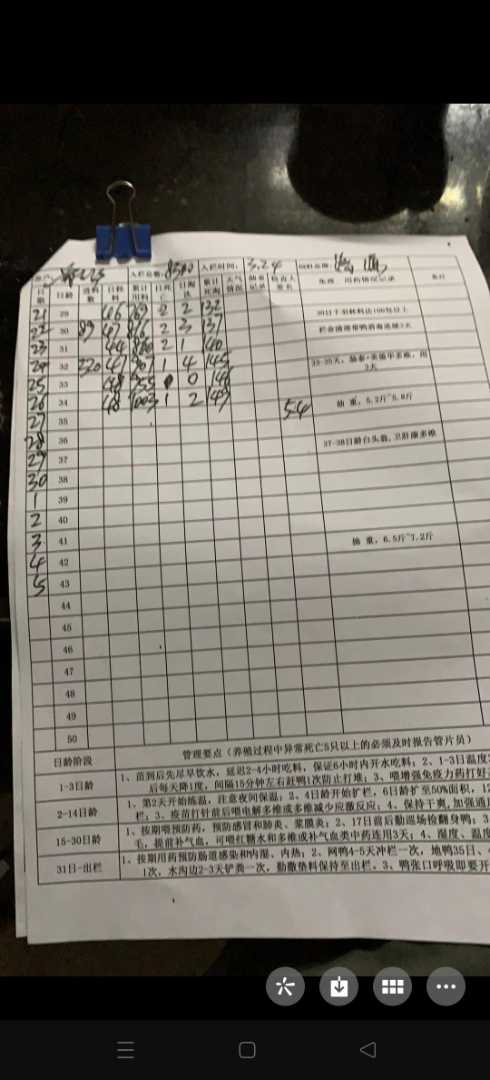 入栏总数: 8500 入栏时间: 3.24
日龄 进料数 日耗料 累计用料 日死亡 日淘汰 累计死淘 天气情况 抽查记录 检查人签名 免疫、用药情况记录 备注
21 29 46 2 2 132
22 30 89 47 2 3 137 栏舍清理带鸭消毒连续3天
23 31 44 2 1 140
24 32 220 47 1 4 145
25 33 48 955 0 146
26 34 48 1003 1 2 149 5.4 抽重,5.2斤~5.8斤
27 35
28 36 37-38日龄白头翁、卫肝康多维
29 37
30 38
1 39
2 40
3 41 抽重,6.5斤~7.2斤
4 42
5 43
44
45
46
47
48
49
50
日龄阶段 管理要点(养殖过程中异常死亡5只以上的必须及时报告管片员)
1-3日龄 1、苗到后先尽早饮水,延迟2-4小时吃料,保证6小时内开水吃料;2、1-3日温度
后每天降1度,间隔15分钟左右赶鸭1次防止打堆;3、喂增强免疫力药打好
2-14日龄 1、第2天开始炼温,注意夜间保温;2、4日龄开始扩栏,6日龄扩至50%面积,12
栏;3、疫苗打针前后喂电解多维或多维减少应激反应;4、保持干爽,加强通
15-30日龄 1、按期喂预防药,预防感冒和肺炎、浆膜炎;2、17日前后勤巡场捡翻身鸭;3
毛,提前补气血,可喂红糖水和多维或补气血类中药连用3天;4、湿度、温度
31日-出栏 1、按期用药预防肠道感染和内湿、内热;2、网鸭4-5天冲栏一次,地鸭35日、
1次,水沟边2-3天铲粪一次,勤撒垫料保持至出栏。3、鸭张口呼吸即要开